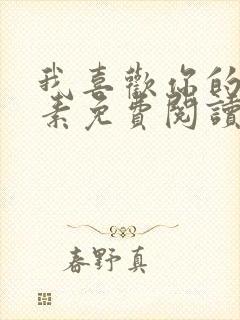 我喜歡你的
素免費閱讀
春野真